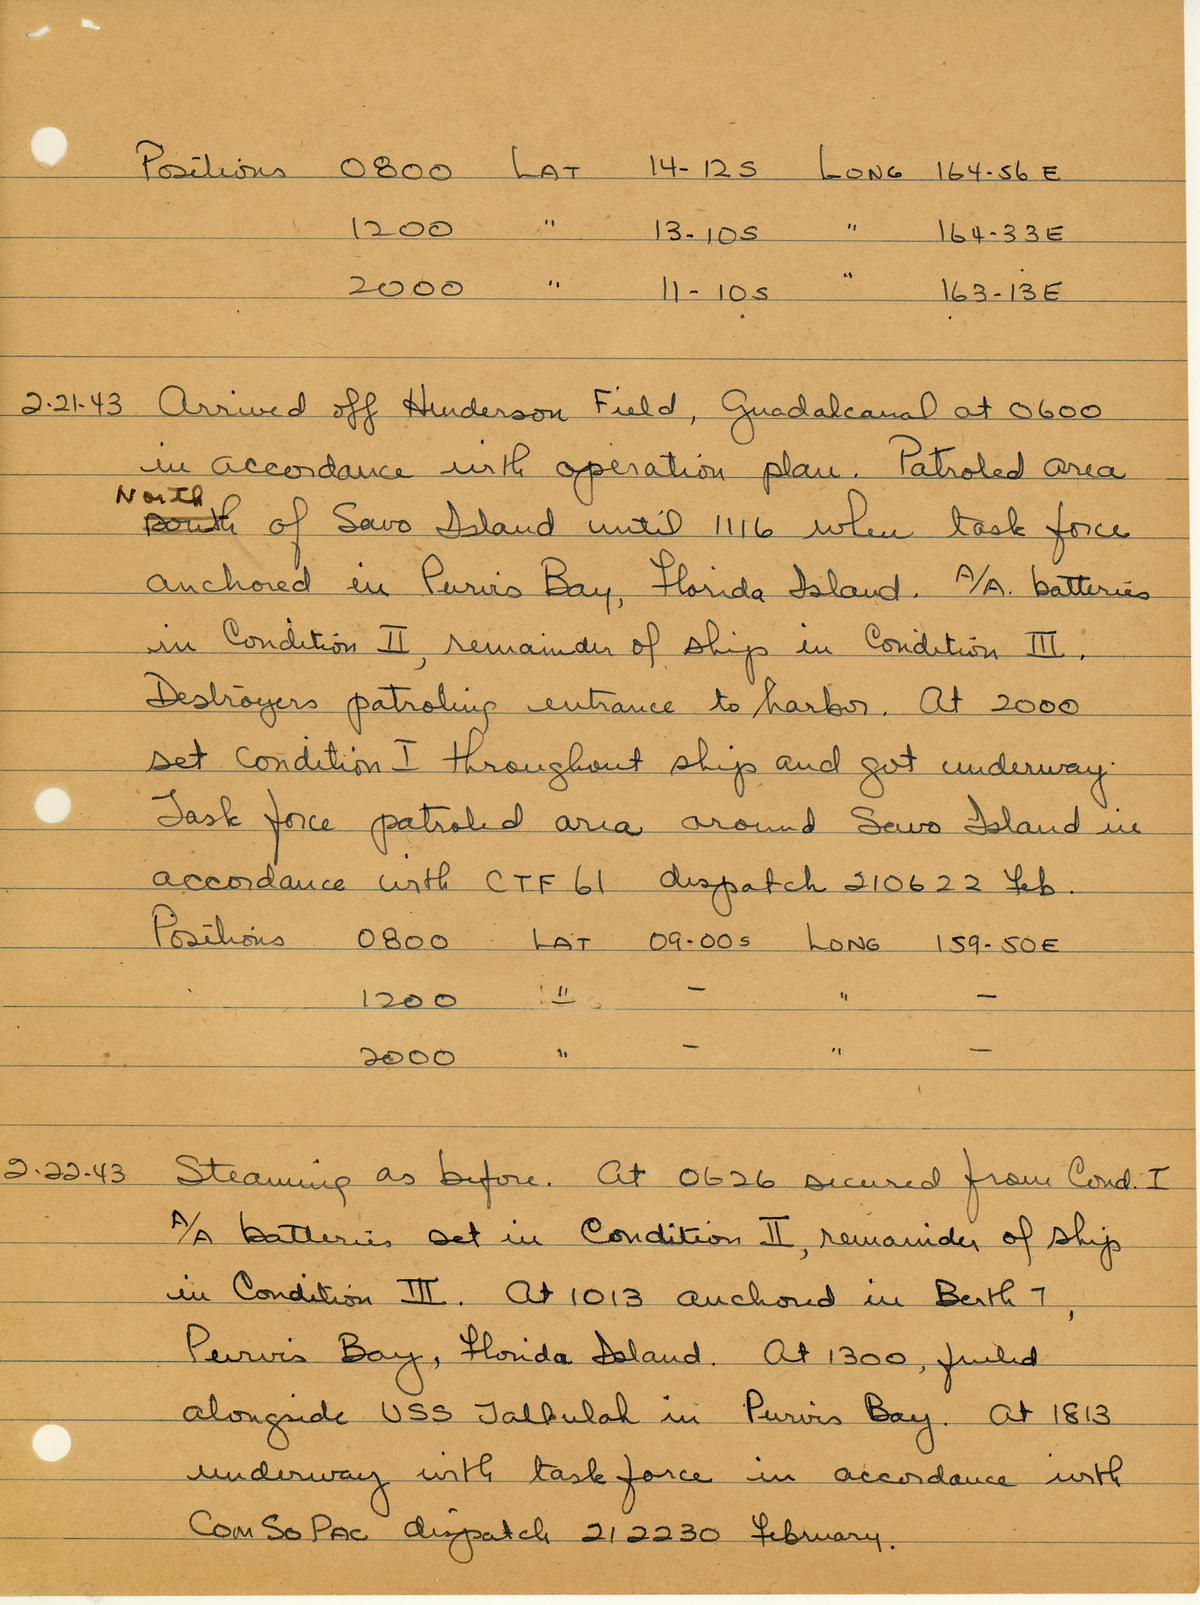 Positions 0800 LAT 14-12S LONG 164-56E
1200 " 13-10S " 164-33E
2000 " 11-10S " 163-13E
2-21-43 Arrived off Henderson Field, Guadalcanal at 0600
in accordance with operation plan. Patroled area
North
south of Savo Island until 1116 when task force
anchored in Purvis Bay, Florida Island. A/A. batteries
in Condition II, remainder of ship in Condition III.
Destroyers patroling entrance to harbor. At 2000
set Condition I throughout ship and got underway.
Task force patroled area around Savo Island in
accordance with CTF 61 dispatch 210622 Feb.
Positions 0800 LAT 09-00S LONG 159-50E
1200 " - " -
2000 " - " -
2-22-43 Steaming as before. At 0626 secured from Cond. I
A/A batteries set in Condition II, remainder of ship
in Condition III. At 1013 anchored in Berth 7,
Purvis Bay, Florida Island. At 1300, fueled
alongside USS Tallulah in Purvis Bay. At 1813
underway with task force in accordance with
ComSoPac dispatch 212230 February.